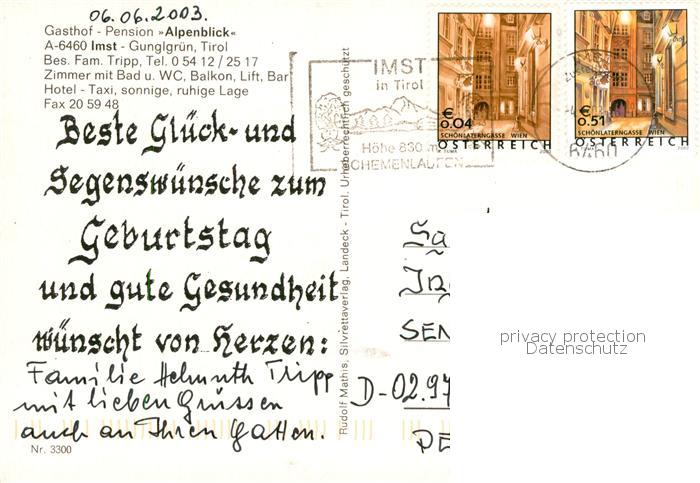 06.06.2003.
Gasthof - Pension »Alpenblick«
A-6460 Imst - Gunglgrün, Tirol
Bes. Fam. Tripp, Tel. 0 54 12 / 25 17
Zimmer mit Bad u. WC, Balkon, Lift, Bar
Hotel - Taxi, sonnige, ruhige Lage
Fax 20 59 48
Beste Glück- und
Segenswünsche zum
Geburtstag
und gute Gesundheit
wünscht von Herzen:
Familie Helmuth Tripp
mit lieben Grüssen
auch an Ihren Gatten.
Nr. 3300
Rudolf Mathis, Silvrettaverlag, Landeck - Tirol. Urheberrechtlich geschützt
IMST
in Tirol
Höhe 830 m
SCHEMENLAUFEN
€
0.04
SCHÖNLATERNGASSE WIEN
ÖSTERREICH
€
0.51
SCHÖNLATERNGASSE WIEN
ÖSTERREICH
6460
SEN
D-02.97
privacy protection
Datenschutz